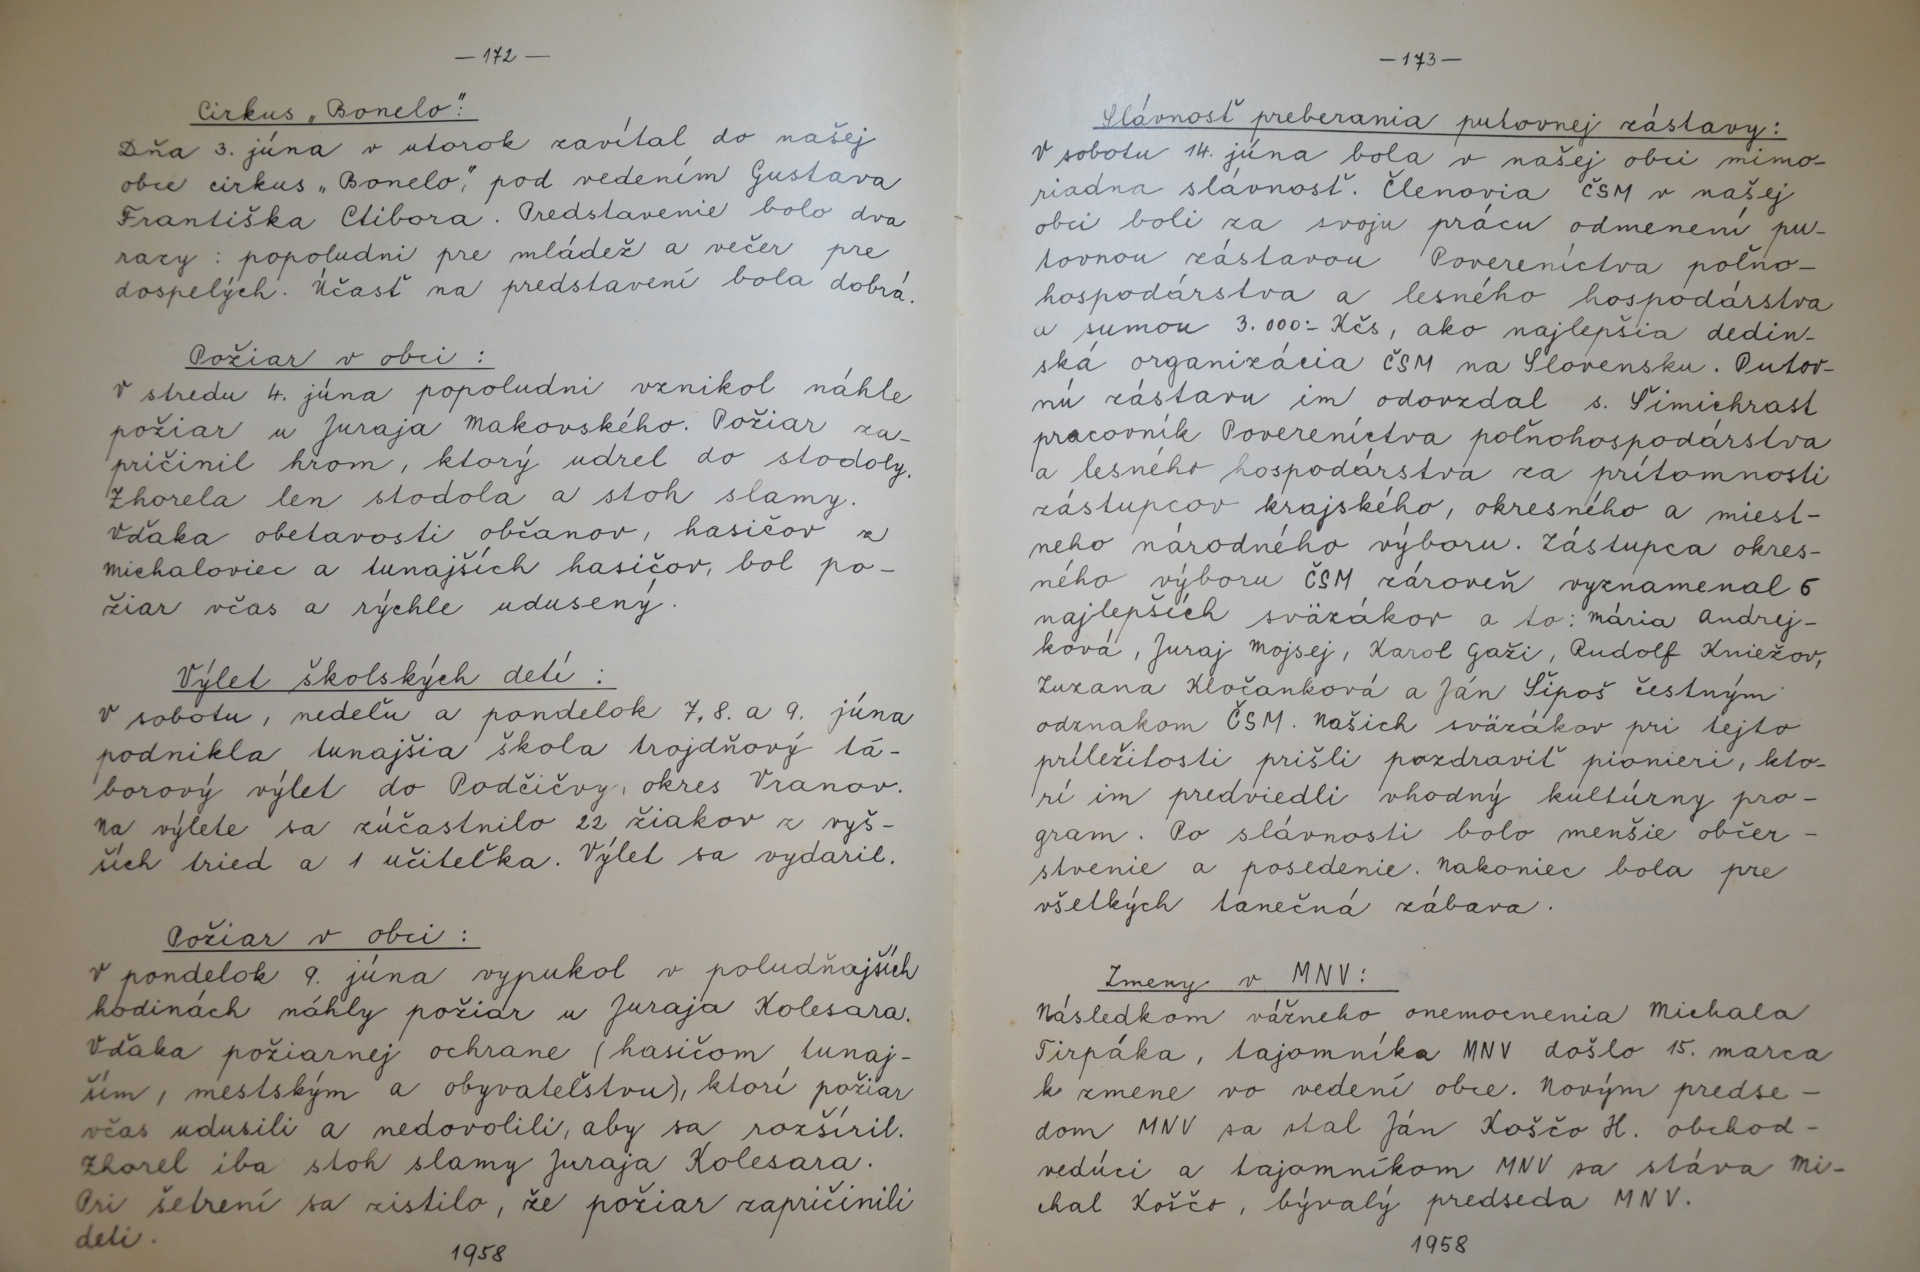 — 172 —
Cirkus „Bonelo":
Dňa 3. júna v utorok zavítal do našej
obce cirkus „Bonelo", pod vedením Gustava
Františka Ctibora. Predstavenie bolo dva
razy : popoludni pre mládež a večer pre
dospelých. Účasť na predstavení bola dobrá.
Požiar v obci :
V stredu 4. júna popoludni vznikol náhle
požiar u Juraja Makovského. Požiar za-
pričinil hrom, ktorý udrel do stodoly.
Zhorela len stodola a stoh slamy.
Vďaka obetavosti občanov, hasičov z
Michaloviec a tunajších hasičov, bol po-
žiar včas a rýchle udusený.
Výlet školských detí :
V sobotu, nedeľu a pondelok 7, 8. a 9. júna
podnikla tunajšia škola trojdňový tá-
borový výlet do Podčičvy, okres Vranov.
Na výlete sa zúčastnilo 22 žiakov z vyš-
ších tried a 1 učiteľka. Výlet sa vydaril.
Požiar v obci :
V pondelok 9. júna vypukol v poludňajších
hodinách náhly požiar u Juraja Kolesara.
Vďaka požiarnej ochrane (hasičom tunaj-
ším, mestským a obyvateľstvu), ktorí požiar
včas udusili a nedovolili, aby sa rozšíril.
Zhorel iba stoh slamy Juraja Kolesara.
Pri šetrení sa zistilo, že požiar zapričinili
deti.
1958
— 173 —
Slávnosť preberania putovnej zástavy :
V sobotu 14. júna bola v našej obci mimo-
riadna slávnosť. Členovia ČSM v našej
obci boli za svoju prácu odmenení pu-
tovnou zástavou Povereníctva poľno-
hospodárstva a lesného hospodárstva
a sumou 3.000:- Kčs, ako najlepšia dedin-
ská organizácia ČSM na Slovensku. Putov-
nú zástavu im odovzdal s. Šimichrast
pracovník Povereníctva poľnohospodárstva
a lesného hospodárstva za prítomnosti
zástupcov krajského, okresného a miest-
neho národného výboru. Zástupca okres-
ného výboru ČSM zároveň vyznamenal 6
najlepších sväzákov a to: Mária Andrej-
ková, Juraj Mojsej, Karol Gaži, Rudolf Kniežov,
Zuzana Kločanková a Ján Šipoš čestným
odznakom ČSM. Našich sväzákov pri tejto
príležitosti prišli pozdraviť pionieri, kto-
rí im predviedli vhodný kultúrny pro-
gram. Po slávnosti bolo menšie občer-
stvenie a posedenie. Nakoniec bola pre
všetkých tanečná zábava.
Zmeny v MNV:
Následkom vážneho onemocnenia Michala
Tirpáka, tajomníka MNV došlo 15. marca
k zmene vo vedení obce. Novým predse-
dom MNV sa stal Ján Koščo H. obchod-
vedúci a tajomníkom MNV sa stáva Mi-
chal Koščo, bývalý predseda MNV.
1958